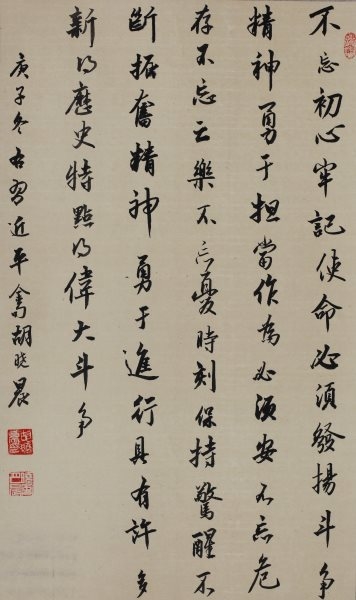 不忘初心牢記使命必須發揚斗争
精神勇于担當作為必須安不忘危
存不忘亡樂不忘憂時刻保持驚醒不
斷振奮精神勇于進行具有許多
新的歷史特點的偉大斗争
庚子冬右習近平句胡晓晨